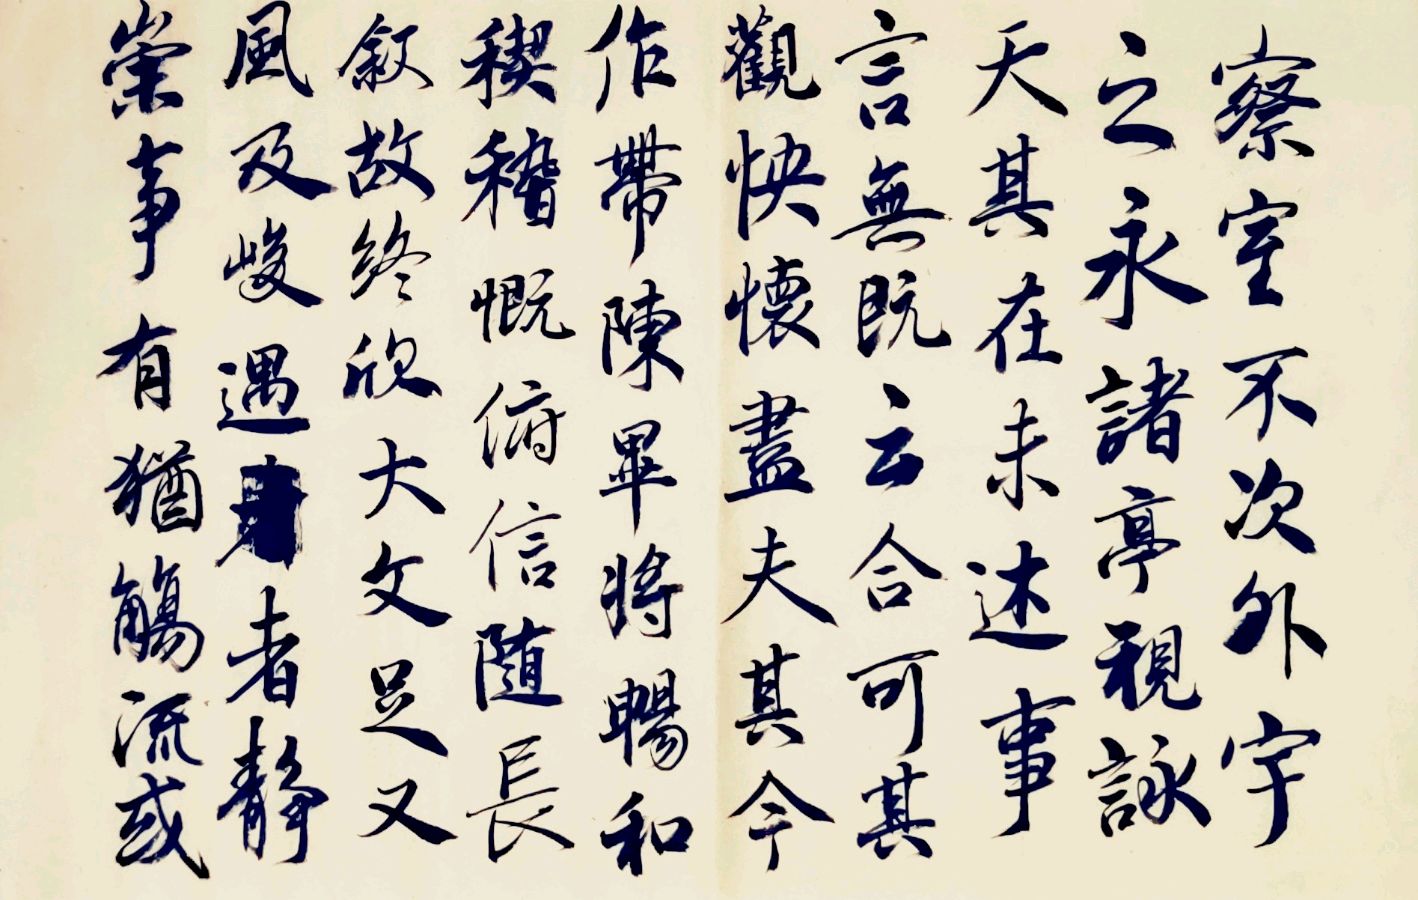 察室不次外宇
之永諸亭視詠
天其在未述事
言無既云合可其
觀快懷盡夫其今
作帶陳畢將暢和
稧稽慨俯信随長
叙故終欣大文足又
風及峻遇者靜
崇事有猶觴流或